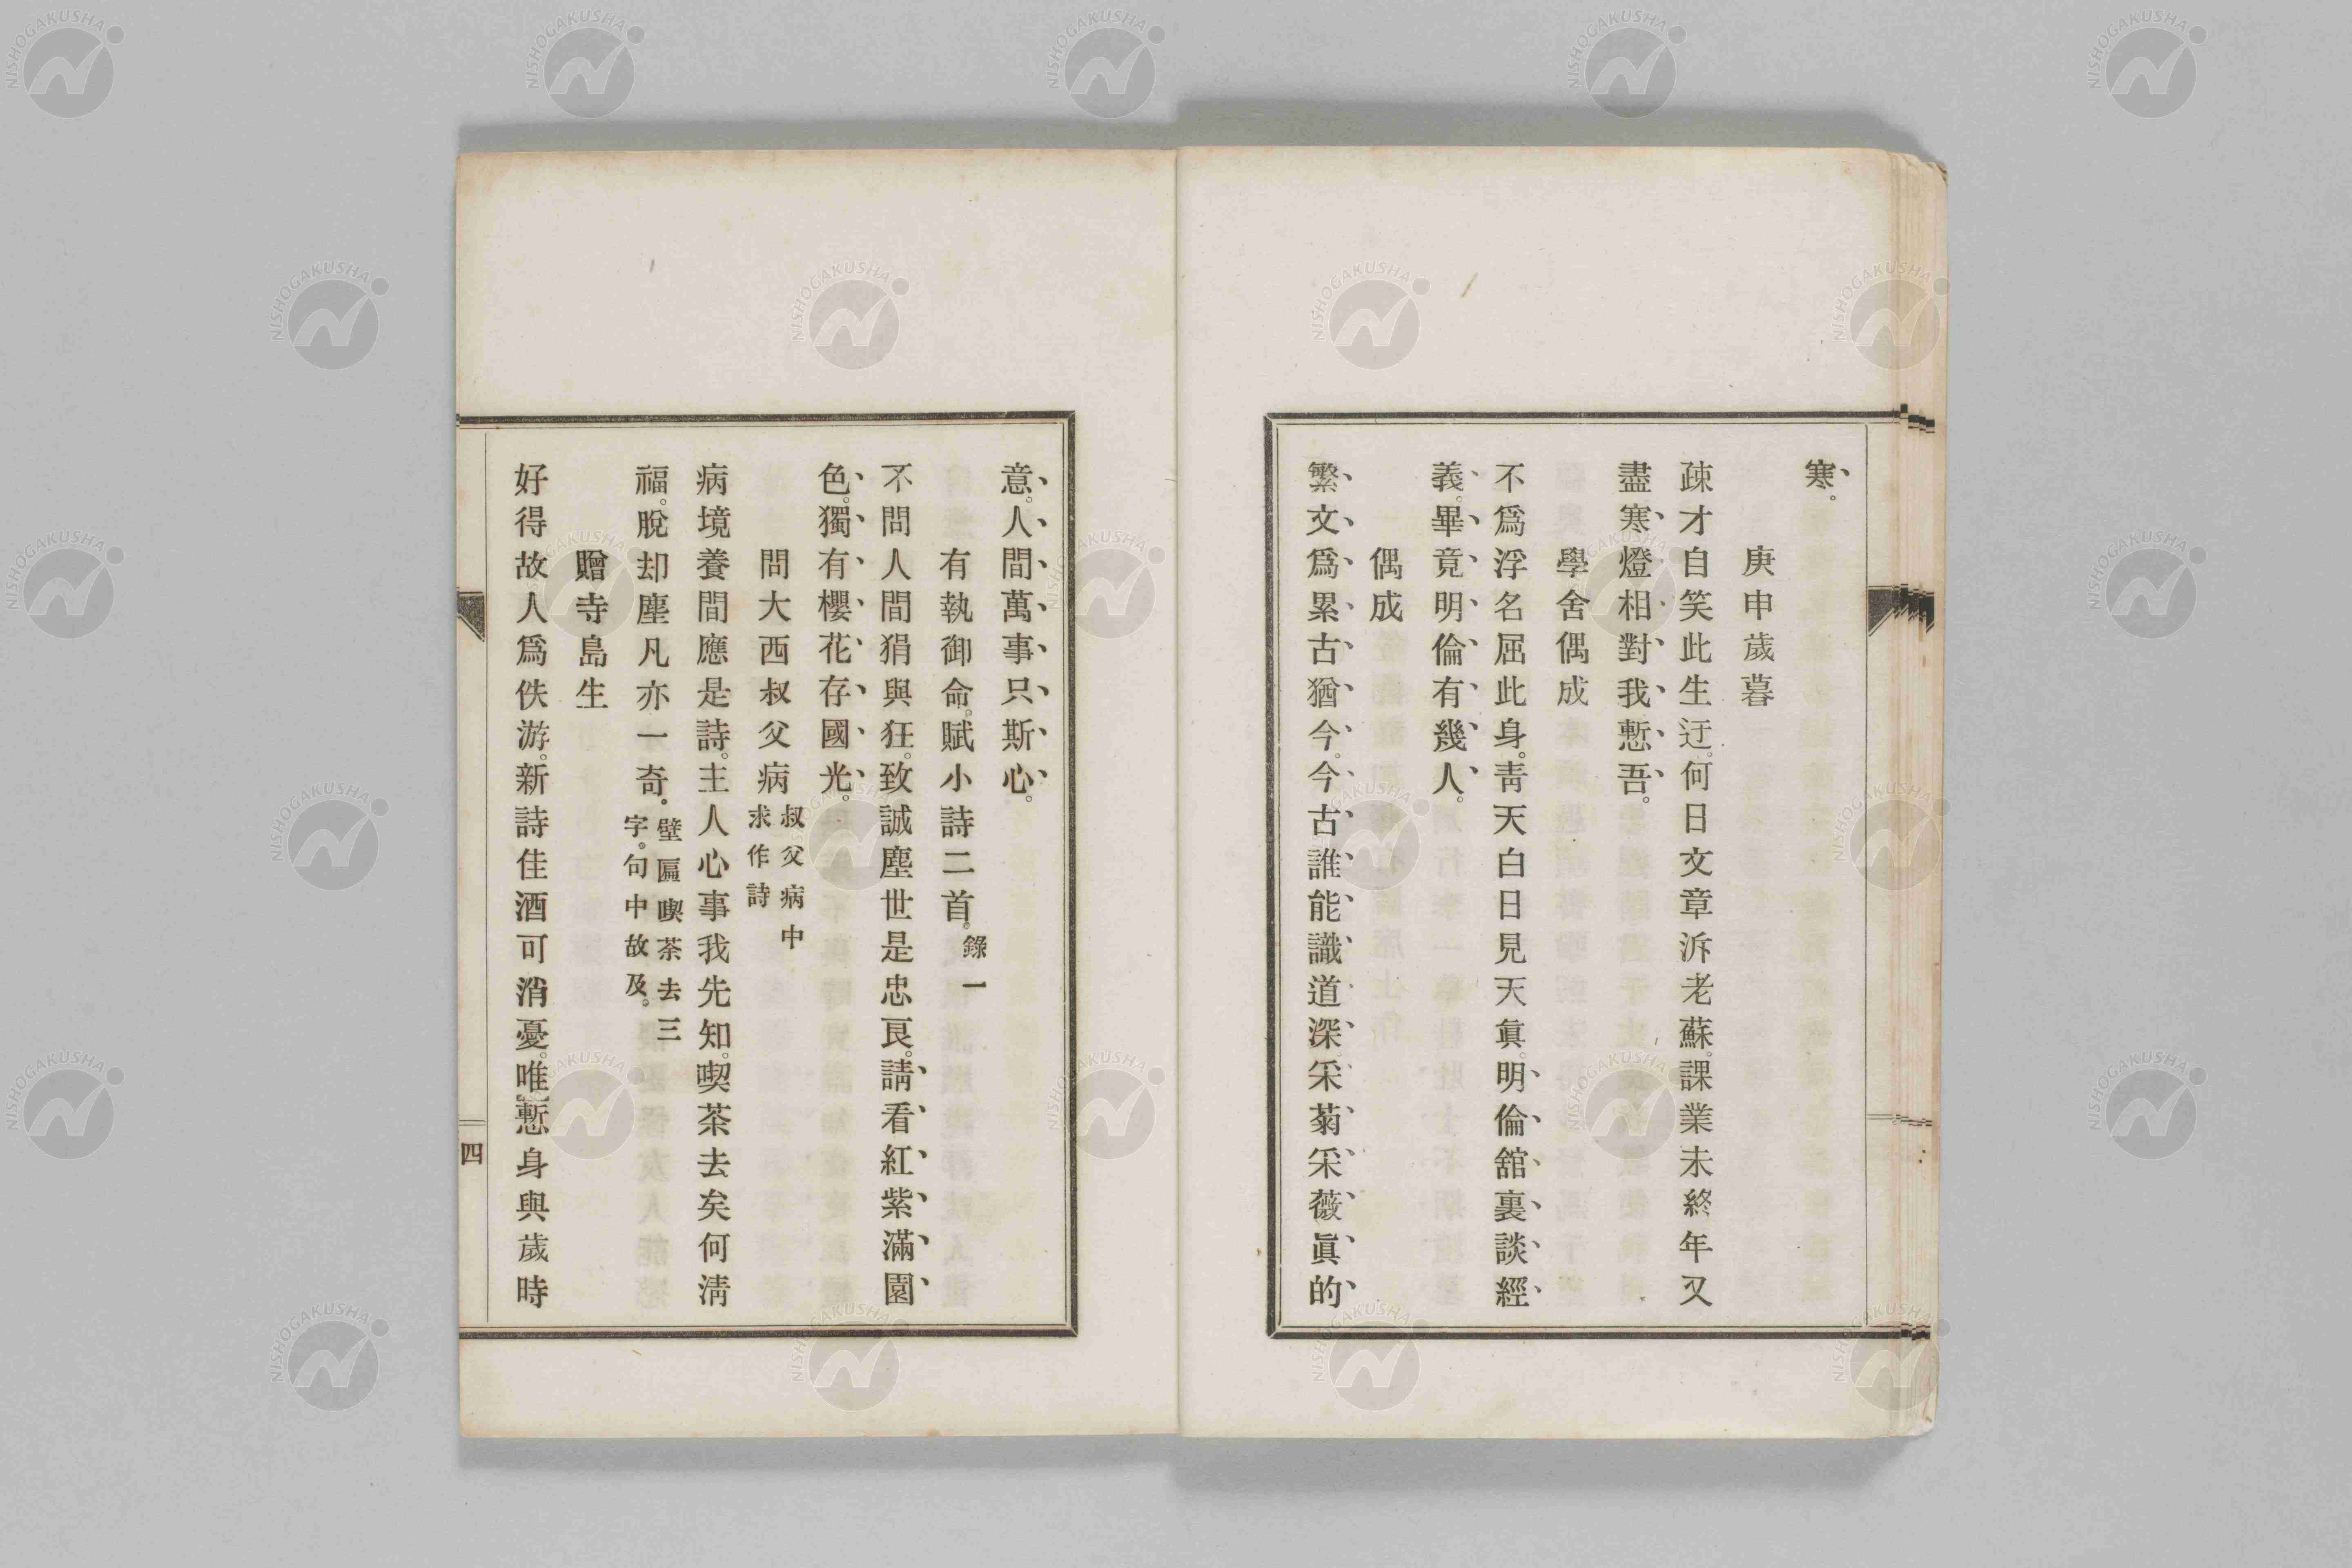 寒。
庚申歲暮
疎才自笑此生迂。何日文章泝老蘇。課業未終年又
盡寒燈相對我慙吾。
學舍偶成
不爲浮名屈此身。靑天白日見天眞。明倫舘裏談經
義。畢竟明倫有幾人。
偶成
繁文爲累古猶今。今古誰能識道深。采菊采薇眞的
意。人間萬事只斯心。
有執御命。賦小詩二首。錄一
不問人間狷與狂。致誠塵世是忠良。請看紅紫滿園
色。獨有櫻花存國光。
問大西叔父病 叔父病中
求作詩
病境養間應是詩。主人心事我先知。喫茶去矣何淸
福。脫却塵凡亦一奇。壁匾喫茶去三
字。句中故及。
贈寺島生
好得故人爲佚游。新詩佳酒可消憂。唯慙身與歲時
四
NISHOGAKUSHA